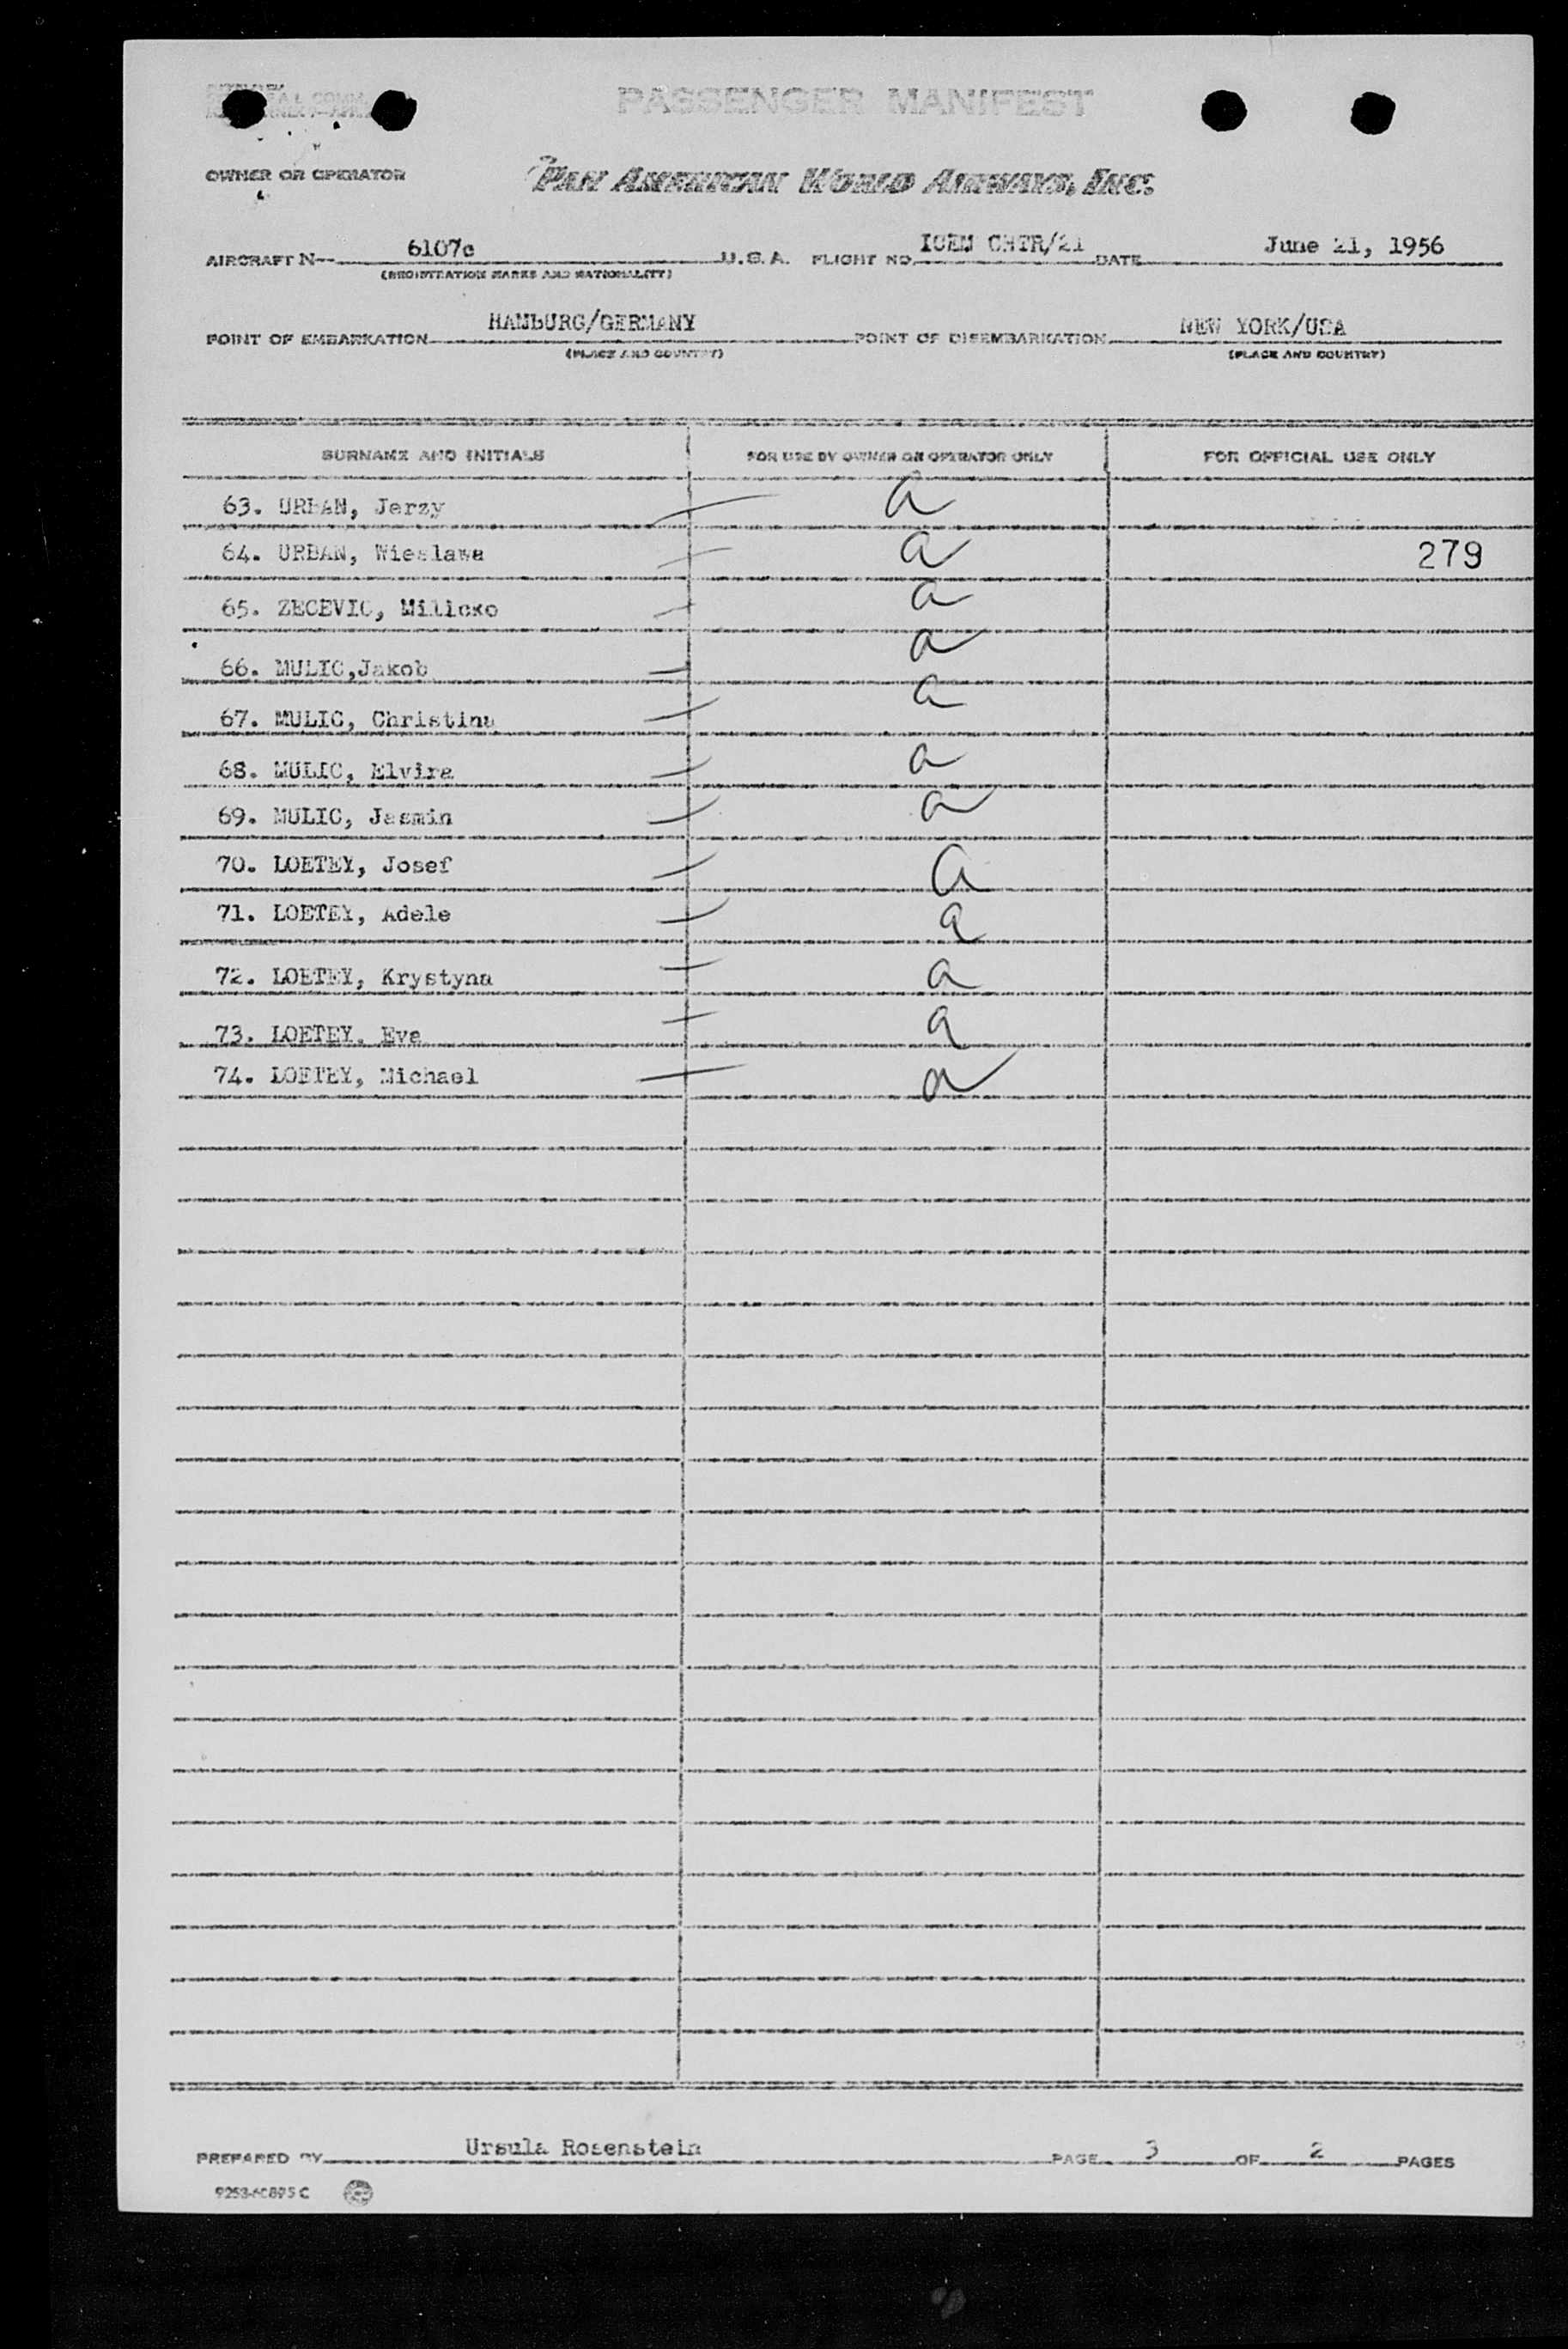 PASSENGER MANIFEST
OWNER OR OPERATOR PAN AMERICAN WORLD AIRWAYS, INC.
AIRCRAFT N-- 6107c U.S.A. FLIGHT NO. ICEM CHTR/21 DATE June 21, 1956
(REGISTRATION MARKS AND NATIONALITY)
POINT OF EMBARKATION HAMBURG/GERMANY POINT OF DISEMBARKATION NEW YORK/USA
(PLACE AND COUNTRY) (PLACE AND COUNTRY)
SURNAME AND INITIALS FOR USE BY OWNER OR OPERATOR ONLY FOR OFFICIAL USE ONLY
63. URBAN, Jerzy a
64. URBAN, Wieslawa a 279
65. ZECEVIC, a
66. MULIC,Jakob a
67. MULIC, Christina a
68. MULIC, Elvira a
69. MULIC, Jasmin a
70. LOETEY, Josef a
71. LOETEY, Adele a
72. LOETEY, Krystyna a
73. LOETEY, Eva a
74. LOETEY, Michael a
PREPARED BY Ursula Rosenstein PAGE 3 OF 2 PAGES